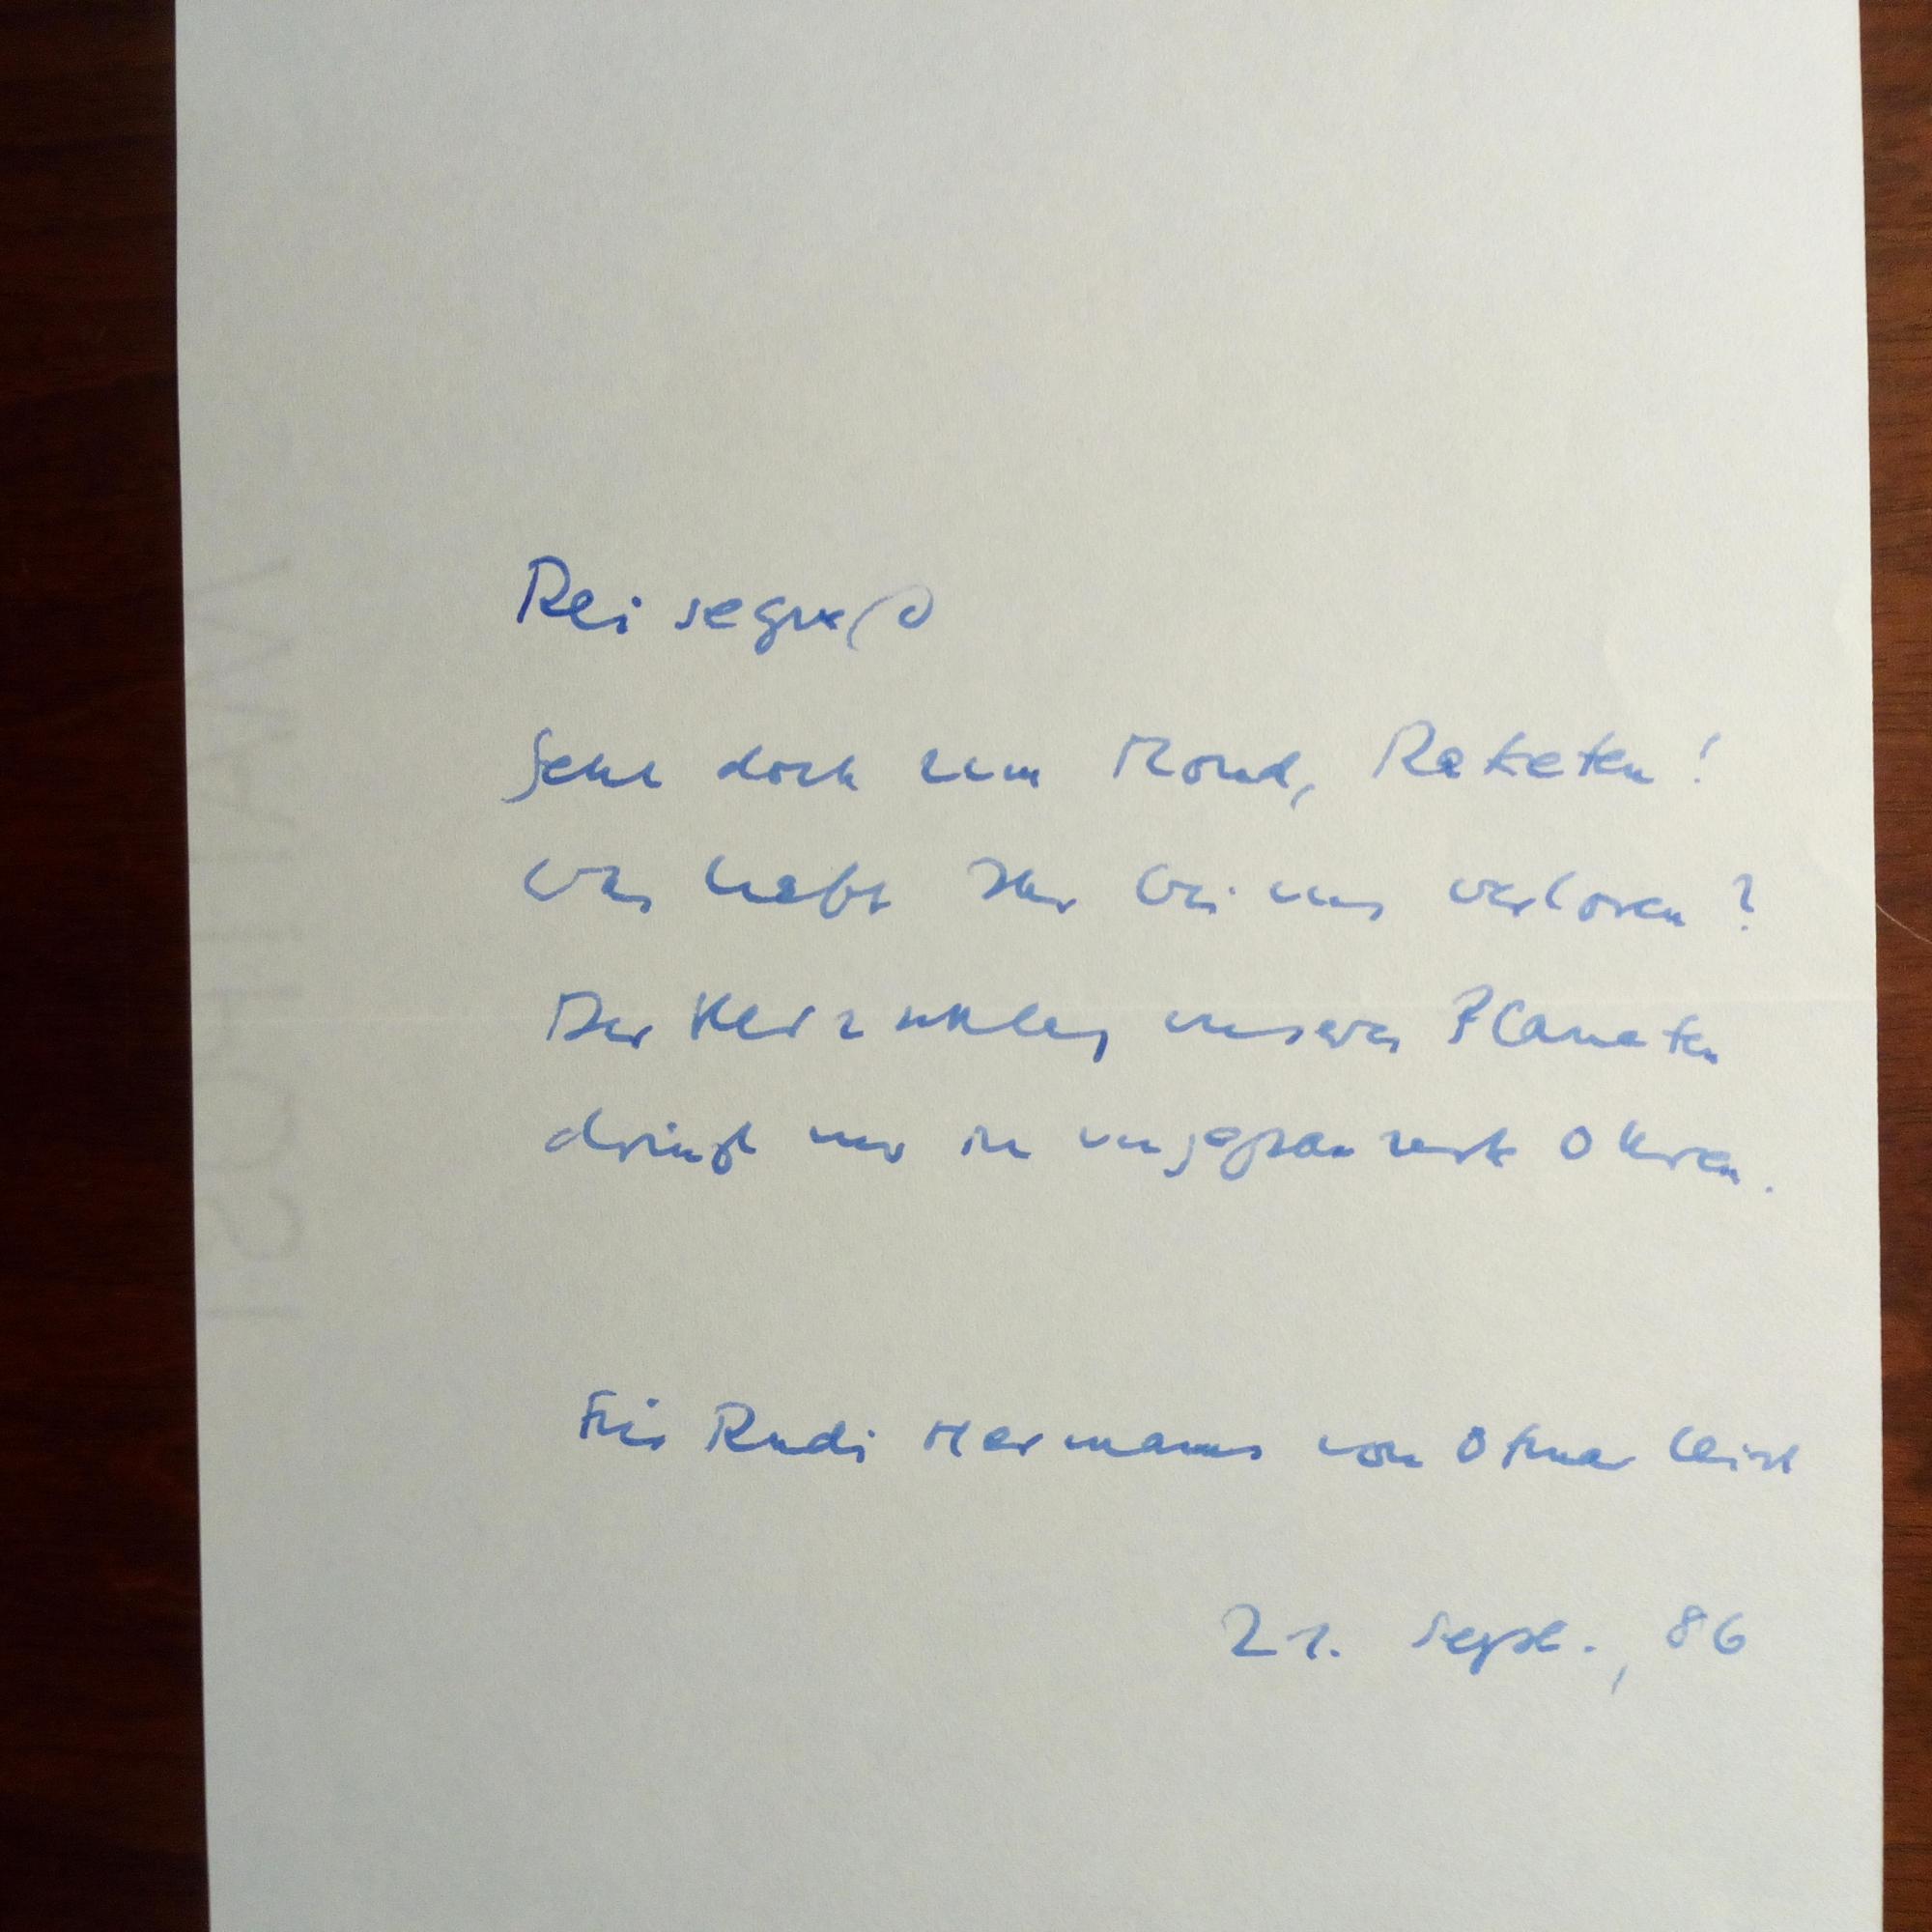 Reisegruß
Geht doch zum Mond, Raketen!
Was habt Ihr bei uns verloren?
Der Herzschlag unseres Planeten
dringt nur in ungepanzerte Ohren.
Für Rudi Hermanns von Otmar Leist
21. Sept., 86